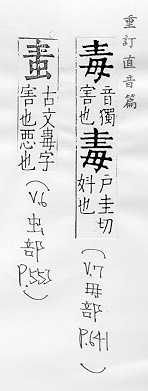 重訂直音篇
毒音獨害也毒戶圭切也
(V.7 毋部 P.641)
古文毒字害也惡也
(V.6 虫部 P.552)